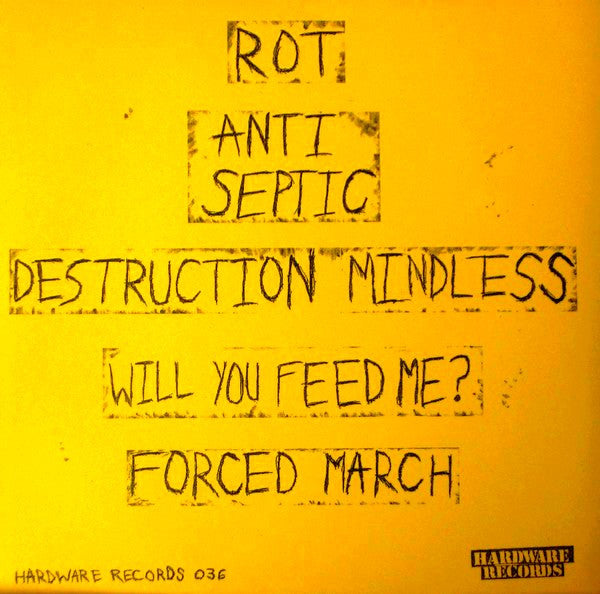 ROT
ANTI
SEPTIC
DESTRUCTION MINDLESS
WILL YOU FEED ME?
FORCED MARCH
HARDWARE RECORDS 036
HARDWARE
RECORDS